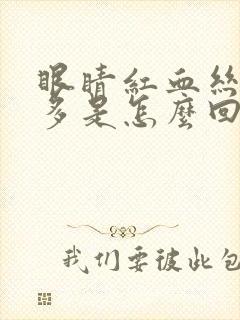 眼睛紅血絲
多是怎麼回
我们要彼此包